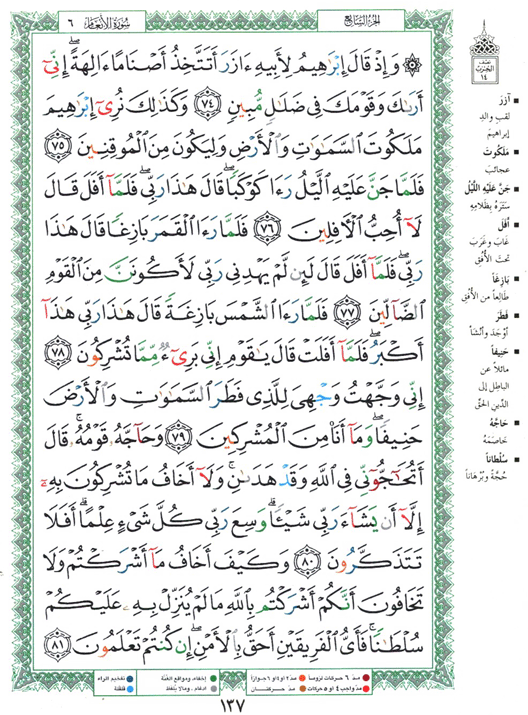 الجزء السابع
سورة الأنعام ٦
نصف
الحزب
١٤
۞ وَإِذْ قَالَ إِبْرَٰهِيمُ لِأَبِيهِ ءَازَرَ أَتَتَّخِذُ أَصْنَامًا ءَالِهَةً ۖ إِنِّىٓ
أَرَىٰكَ وَقَوْمَكَ فِى ضَلَٰلٍ مُّبِينٍ ٧٤ وَكَذَٰلِكَ نُرِىٓ إِبْرَٰهِيمَ
مَلَكُوتَ ٱلسَّمَٰوَٰتِ وَٱلْأَرْضِ وَلِيَكُونَ مِنَ ٱلْمُوقِنِينَ ٧٥
فَلَمَّا جَنَّ عَلَيْهِ ٱلَّيْلُ رَءَا كَوْكَبًا ۖ قَالَ هَٰذَا رَبِّى ۖ فَلَمَّآ أَفَلَ قَالَ
لَآ أُحِبُّ ٱلْءَافِلِينَ ٧٦ فَلَمَّا رَءَا ٱلْقَمَرَ بَازِغًا قَالَ هَٰذَا
رَبِّى ۖ فَلَمَّآ أَفَلَ قَالَ لَئِن لَّمْ يَهْدِنِى رَبِّى لَأَكُونَنَّ مِنَ ٱلْقَوْمِ
ٱلضَّآلِّينَ ٧٧ فَلَمَّا رَءَا ٱلشَّمْسَ بَازِغَةً قَالَ هَٰذَا رَبِّى هَٰذَآ
أَكْبَرُ ۖ فَلَمَّآ أَفَلَتْ قَالَ يَٰقَوْمِ إِنِّى بَرِىٓءٌ مِّمَّا تُشْرِكُونَ ٧٨
إِنِّى وَجَّهْتُ وَجْهِىَ لِلَّذِى فَطَرَ ٱلسَّمَٰوَٰتِ وَٱلْأَرْضَ
حَنِيفًا ۖ وَمَآ أَنَا۠ مِنَ ٱلْمُشْرِكِينَ ٧٩ وَحَآجَّهُۥ قَوْمُهُۥ ۚ قَالَ
أَتُحَٰٓجُّوٓنِّى فِى ٱللَّهِ وَقَدْ هَدَىٰنِ ۚ وَلَآ أَخَافُ مَا تُشْرِكُونَ بِهِۦٓ
إِلَّآ أَن يَشَآءَ رَبِّى شَيْـًٔا ۗ وَسِعَ رَبِّى كُلَّ شَىْءٍ عِلْمًا ۗ أَفَلَا
تَتَذَكَّرُونَ ٨٠ وَكَيْفَ أَخَافُ مَآ أَشْرَكْتُمْ وَلَا
تَخَافُونَ أَنَّكُمْ أَشْرَكْتُم بِٱللَّهِ مَا لَمْ يُنَزِّلْ بِهِۦ عَلَيْكُمْ
سُلْطَٰنًا ۚ فَأَىُّ ٱلْفَرِيقَيْنِ أَحَقُّ بِٱلْأَمْنِ ۖ إِن كُنتُمْ تَعْلَمُونَ ٨١
■ آزَرَ
لقب والدِ
إبراهيمَ
■ مَلَكُوتَ
عجائبَ
■ جَنَّ عَلَيْهِ اللَّيْلُ
سَتَرَهُ بِظلامِه
■ أَفَلَ
غابَ وغَرَبَ
تحت الأُفُقِ
■ بَازِغًا
طالعاً من الأُفُقِ
■ فَطَرَ
أوْجَدَ وأنْشَأَ
■ حَنِيفًا
مائلاً عن
الباطِلِ إلى
الدينِ الحَقِّ
■ حَاجَّهُ
خاصَمَهُ
■ سُلْطَانًا
حُجَّةً وبُرْهَاناً
مدّ ٦ حركات لزوماً مدّ ٢ أو ٤ أو ٦ جوازاً إخفاء، ومواقع الغُنَّة تفخيم الراء
مدّ واجب ٤ أو ٥ حركات مدّ حركتان ادغام، وما لا يُلفَظ قلقلة
١٣٧